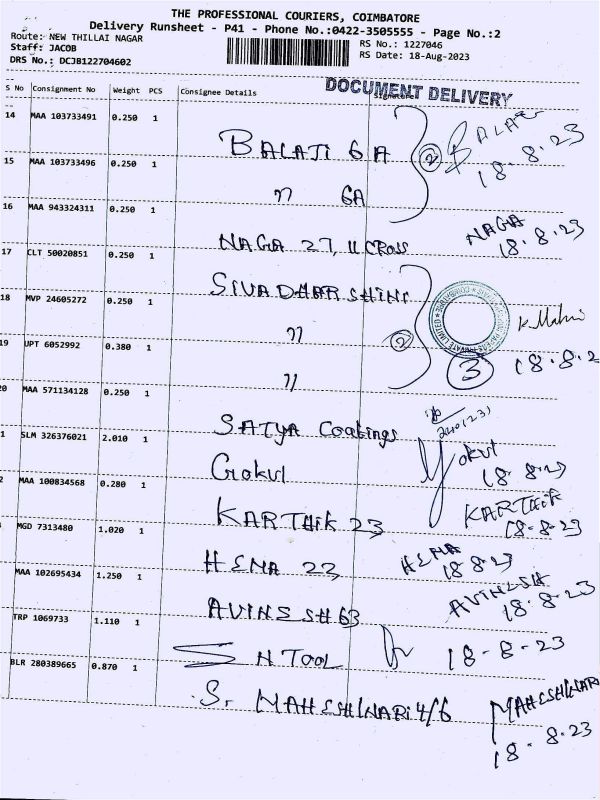 THE PROFESSIONAL COURIERS, COIMBATORE
Delivery Runsheet - P41 - Phone No.:0422-3505555 - Page No.:2
Route: NEW THILLAI NAGAR RS No.: 1227046
Staff: JACOB RS Date: 18-Aug-2023
DRS No.: DCJB122704602
DOCUMENT DELIVERY
S No Consignment No Weight PCS Consignee Details Signature
14 MAA 103733491 0.250 1 BALAJI 6 A 2 BALAJI 18.8.23
15 MAA 103733496 0.250 1 " 6A
16 MAA 943324311 0.250 1 NAGA 27, 11 CROSS NAGA 18.8.23
17 CLT 50020851 0.250 1 SIVADHARSHINI
18 MVP 24605272 0.250 1 " 2 K. Mahi
19 UPT 6052992 0.380 1 " 3 18.8.2
20 MAA 571134128 0.250 1 SATYA Coatings
1 SLM 326376021 2.010 1 Gokul Gokul 18.8.23
2 MAA 100834568 0.280 1 KARTHIK 23 KARTHIK 18-8-23
MGD 7313480 1.020 1 HEMA 23 HEMA 18.8.23
MAA 102695434 1.250 1 AVINESH 63 AVINESH 18.8.23
TRP 1069733 1.110 1 SN TOOL 18-8-23
BLR 280389665 0.870 1 S. MAHESHWARI 4/6 MAHESHWARI 18.8.23